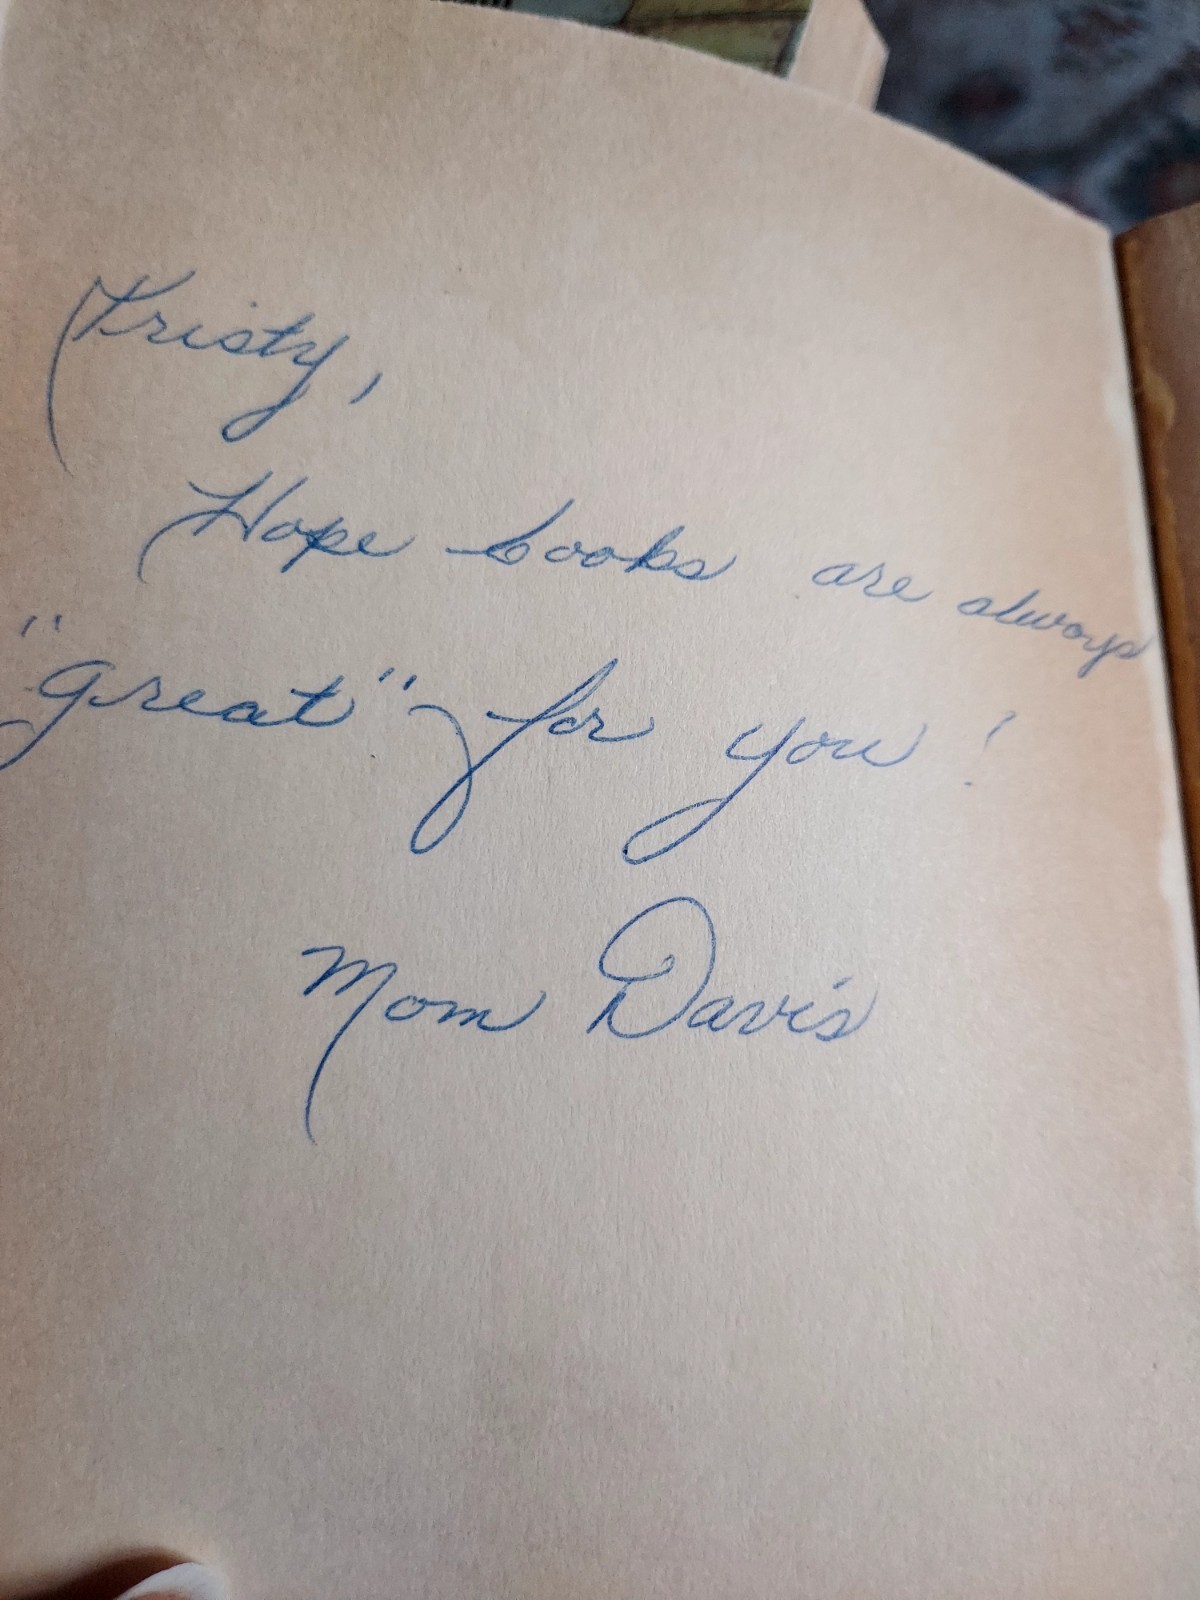 Kristy,
Hope books are always
"great" for you!
Mom Davis